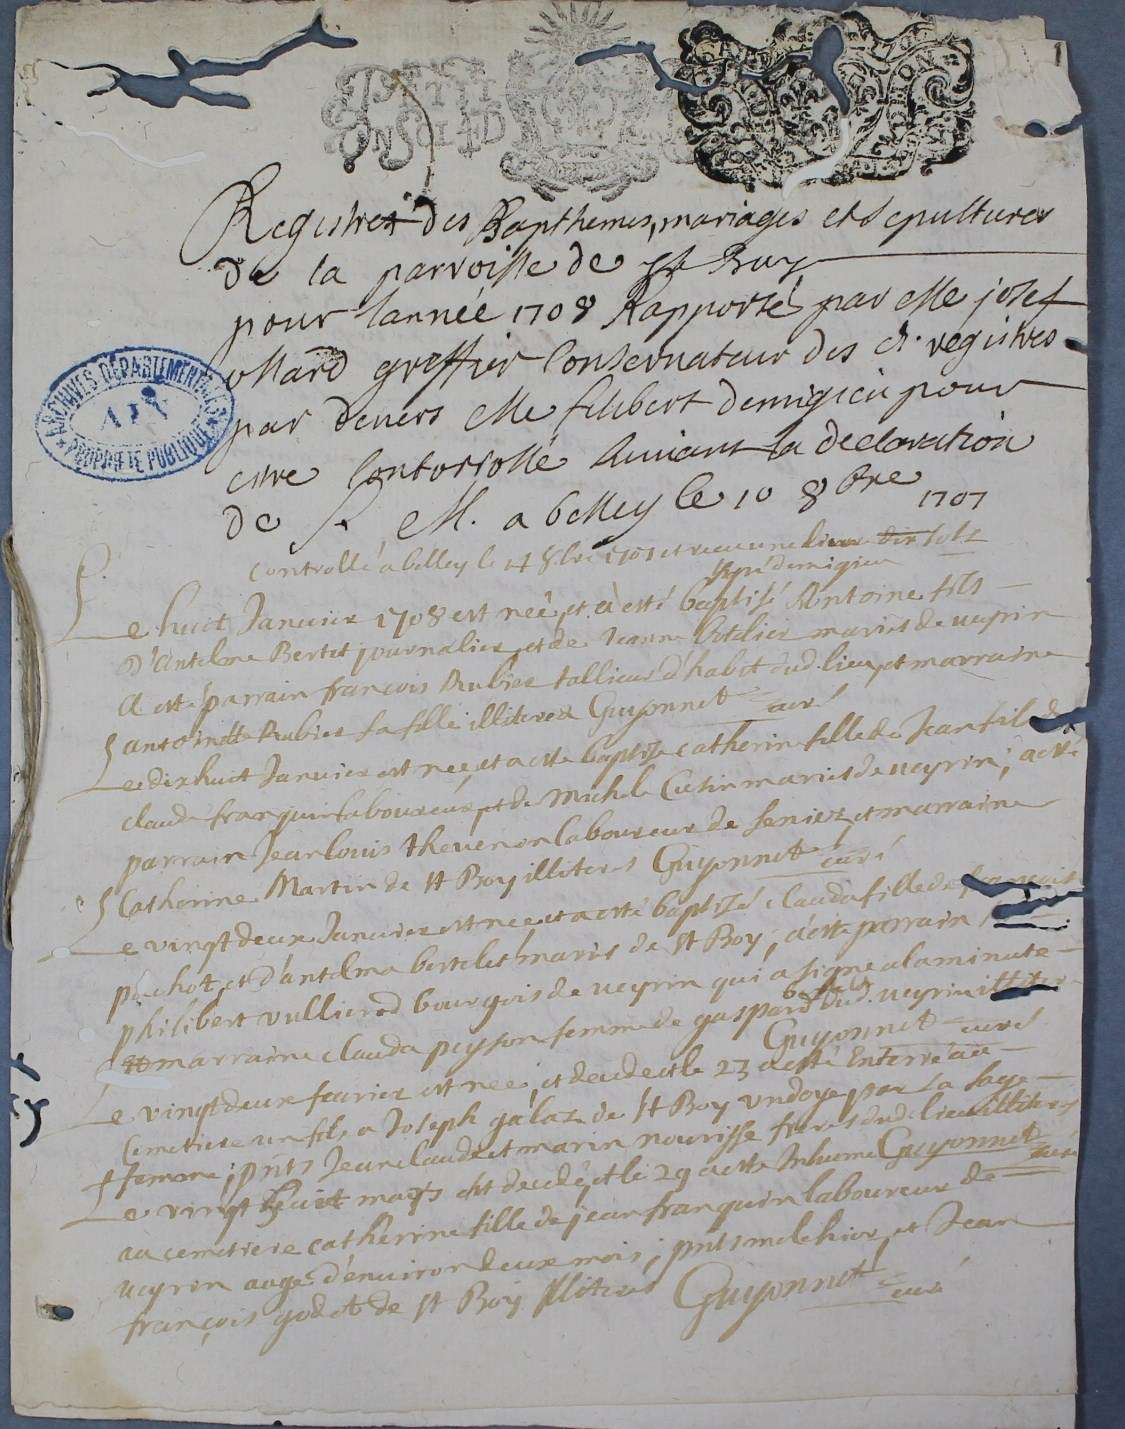 1
Registres des Bapthemes, mariages et sepultures
de la parroisse de St Boy
pour lannéé 1708 Rapporté par Me josef
greffier Conservateur des d. registres
par devers Me filibert demigieu pour
estre Controrollé suivant la declaration
de S. M. a belley le 10 8bre 1707
Controllé a belley le 8bre 1707 et receu une livre dix sols
demigieu
ARCHIVES DÉPARTEMENTALES
AIN
PROPRIÉTÉ PUBLIQUE
Le huit Janvier 1708 est neé et à esté baptisé Antoine fils
D'Antelme Bertet journalier et de Jeanne mariés de veyrin
a esté parrain françois Rubier tallieur d'habit dud. lieu et marraine
antoinette Rubier sa fille illiteres Guyonnet curé
Le dixhuit Janvier est neé et a esté baptisé catherine fille de Jean fils de
claude franquin laboureur et de Michele Cusin mariés de veyrin ; a esté
parrain Jean louis thevenon laboureur de et marraine
Catherine Martin de St Boy illiteres Guyonnet curé
Le vingt deux Janvier est neé et a esté baptizé clauda fille de françois
et d'antelma bertelet mariés de St Boy ; a esté parrain
philibert vullierod bourgois de veyrin qui a signé a la minute
et marraine clauda peysson femme de gaspard dud. veyrin illitere
Guyonnet curé
Le vingtdeux fevrier est neé et decedé et le 23 a esté Enterré au
Cemetiere un fils a Joseph galaz de St Boy undoyé par la sage
femme ; pnts Jean claude et marin nourisse freres dud. lieu illiteres
Le vingt huit mars est decedé et le 29 a esté Inhumé Guyonnet curé
au cemetiere catherine fille de jean franquin laboureur de
veyron aagé d'environ deux mois ; pnts melchior et Jean
françois godet de St Boy Illiteres Guyonnet curé